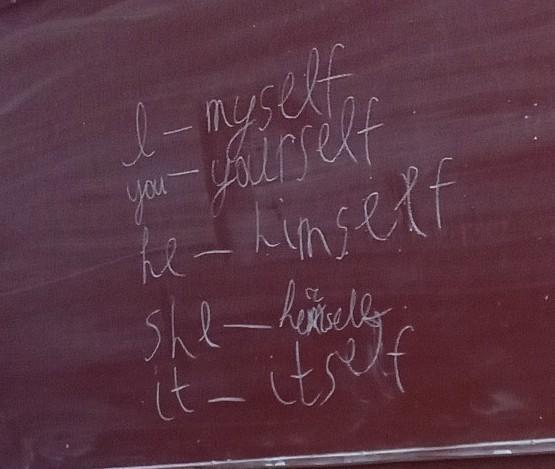 I - myself
you - yourself
he - himself
she -
it - itself